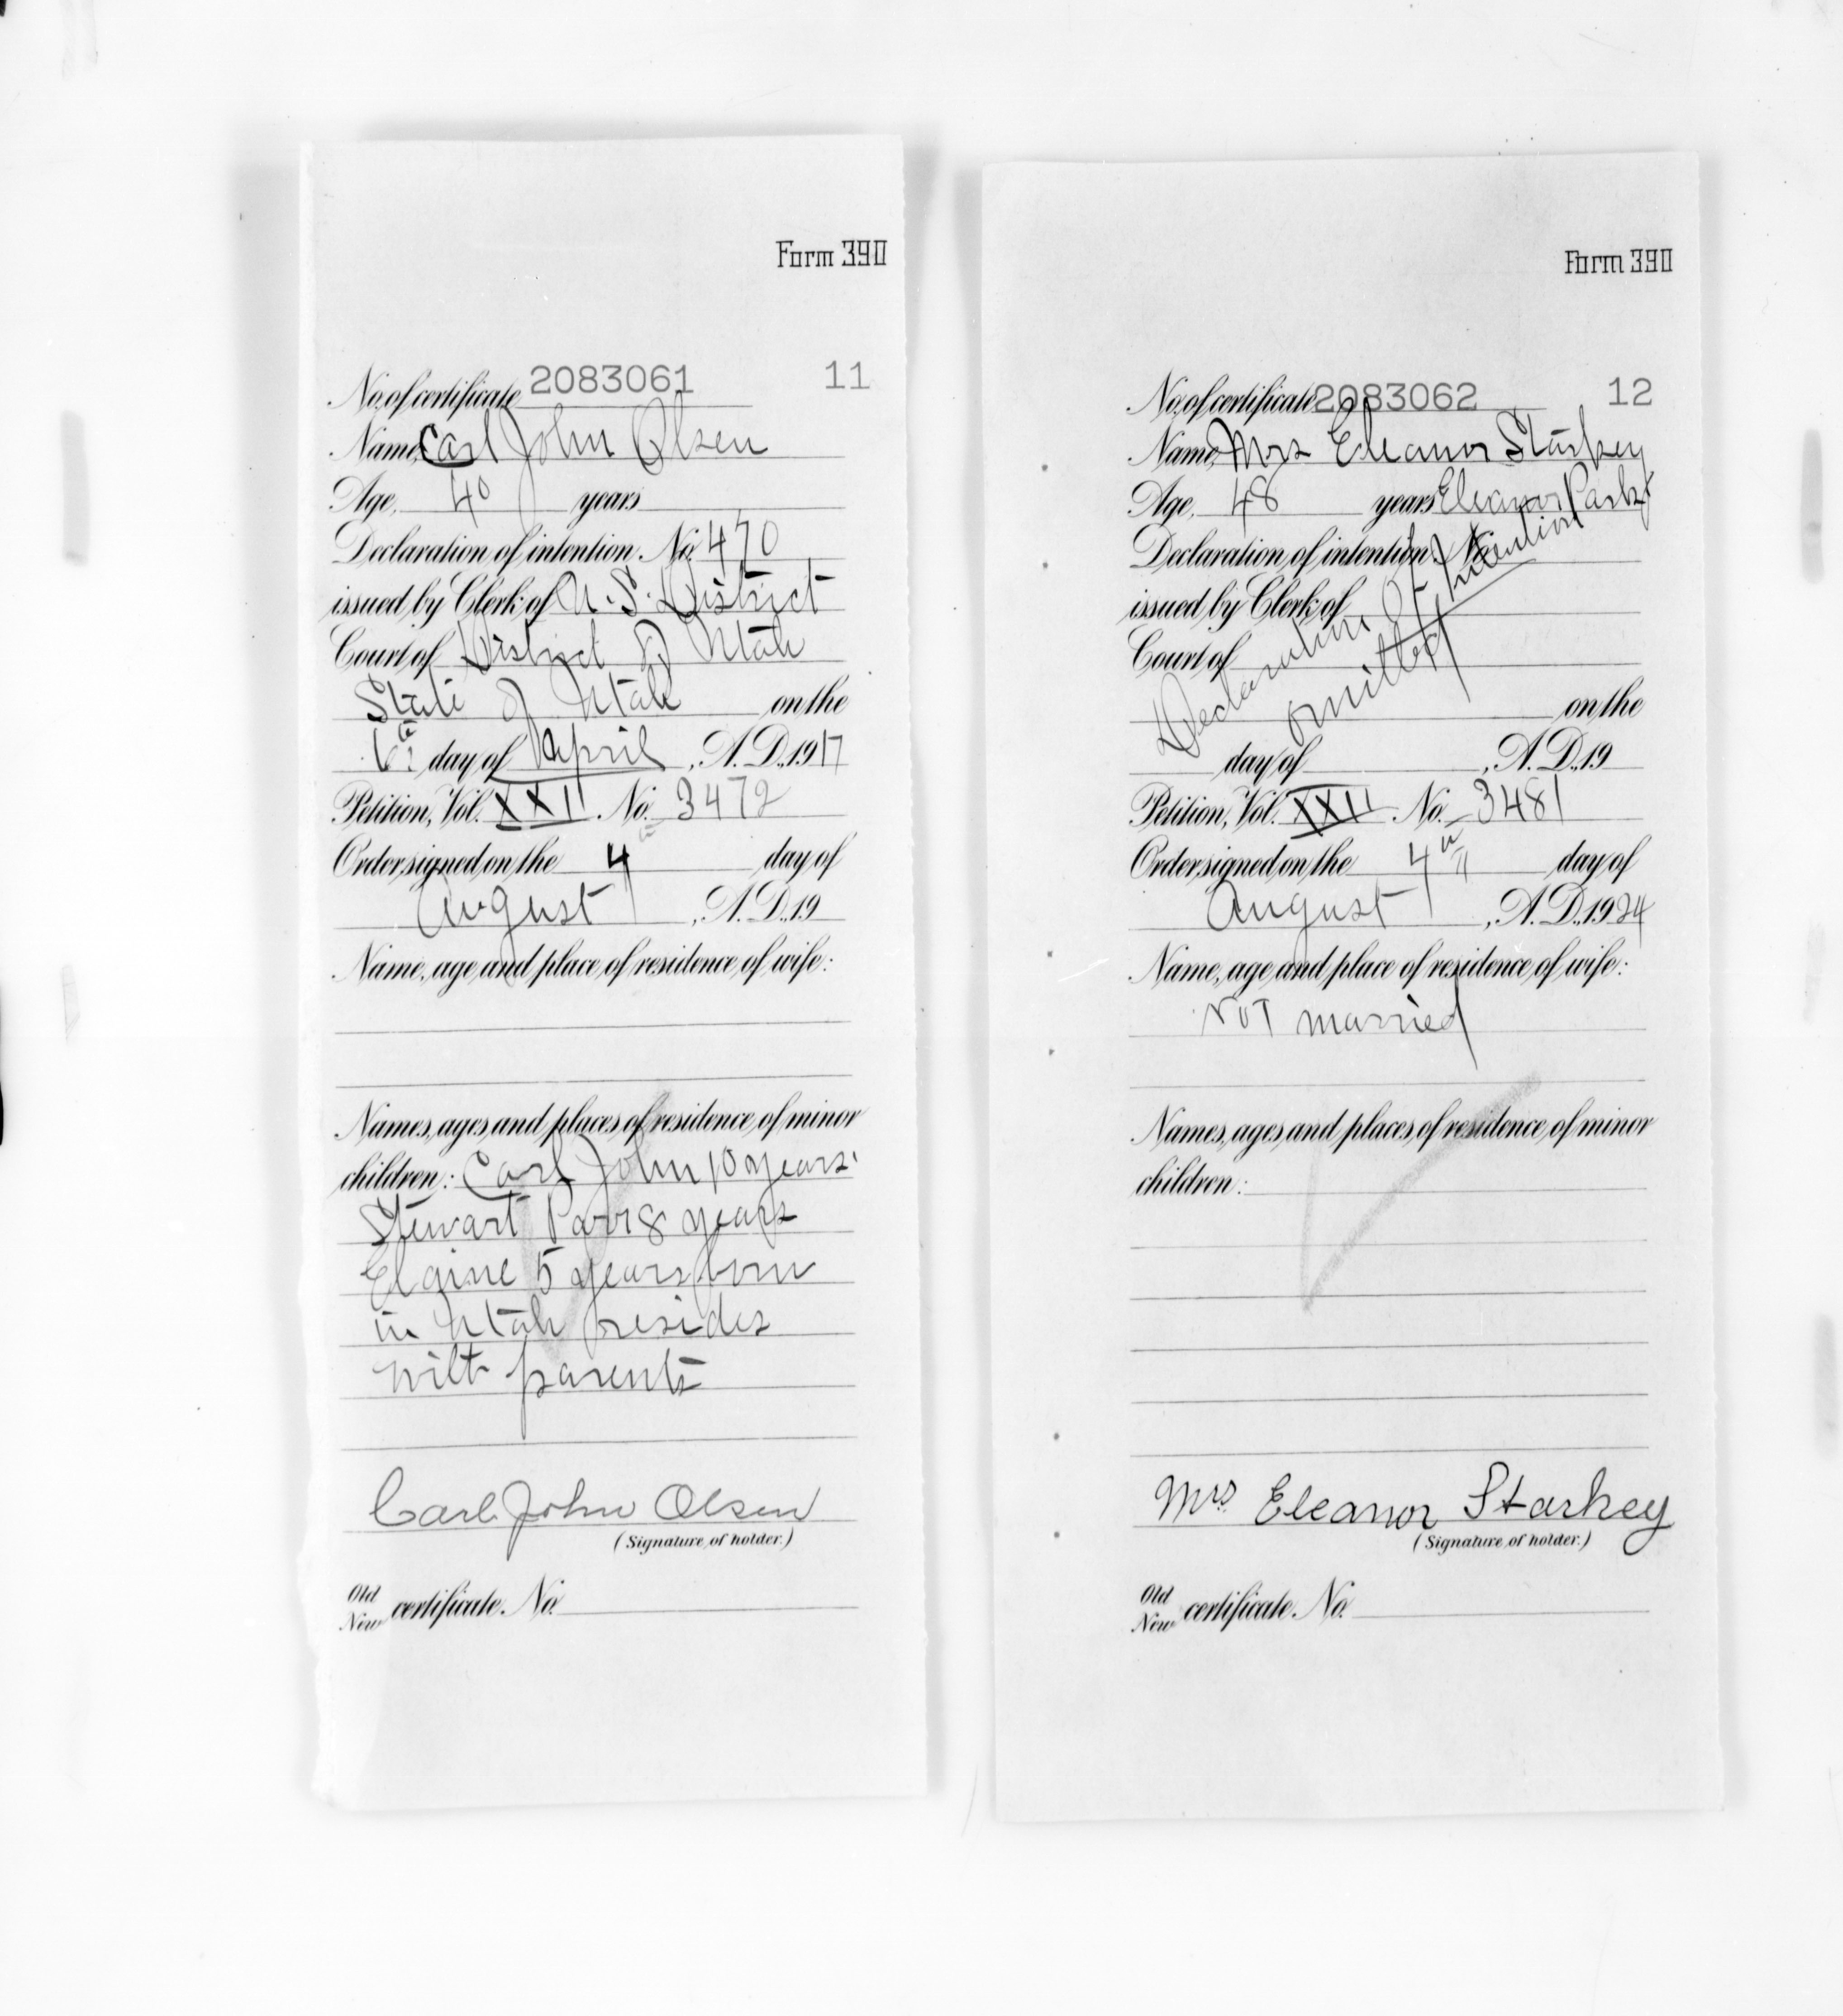 Form 390
No. of certificate 2083061 11
Name, Carl John Olsen
Age, 40 years
Declaration of intention, No. 470
issued by Clerk of U.S. District
Court of District of Utah
State of Utah on the
6th day of April, A.D. 1917
Petition, Vol. XXII No. 3472
Order signed on the 4th day of
August, A.D. 19
Name, age and place of residence of wife:
Names, ages and places of residence of minor
children: Carl John 10 years.
Stewart Parr 8 years
Elaine 5 years born
in Utah resides
with parents
Carl John Olsen
(Signature of holder.)
Old
New certificate. No.
Form 390
No. of certificate 2083062 12
Name, Mrs Eleanor Starkey
Age, 48 years Eleanor
Declaration of intention, No.
issued by Clerk of
Court of
Declaration Of Intention
omitted
on the
day of , A.D. 19
Petition, Vol. XXII No. 3481
Order signed on the 4th day of
August, A.D. 1924
Name, age and place of residence of wife:
Not married
Names, ages and places of residence of minor
children:
Mrs. Eleanor Starkey
(Signature of holder.)
Old
New certificate. No.